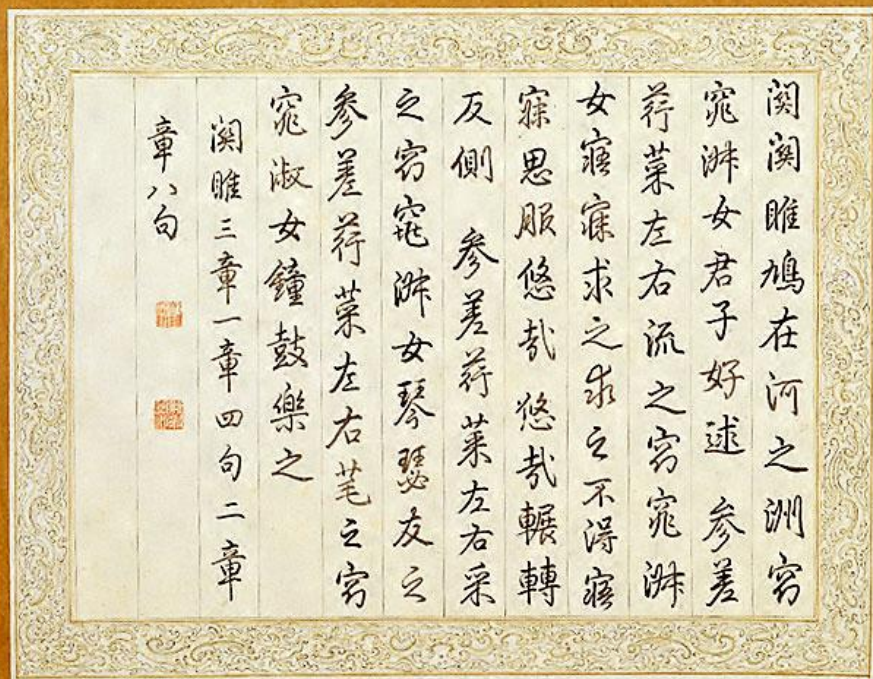 關關雎鳩在河之洲窈
窕淑女君子好逑　參差
荇菜左右流之窈窕淑
女寤寐求之求之不得寤
寐思服悠哉悠哉輾轉
反側　參差荇菜左右采
之窈窕淑女琴瑟友之
參差荇菜左右芼之窈
窕淑女鐘鼓樂之
關雎三章一章四句二章
章八句